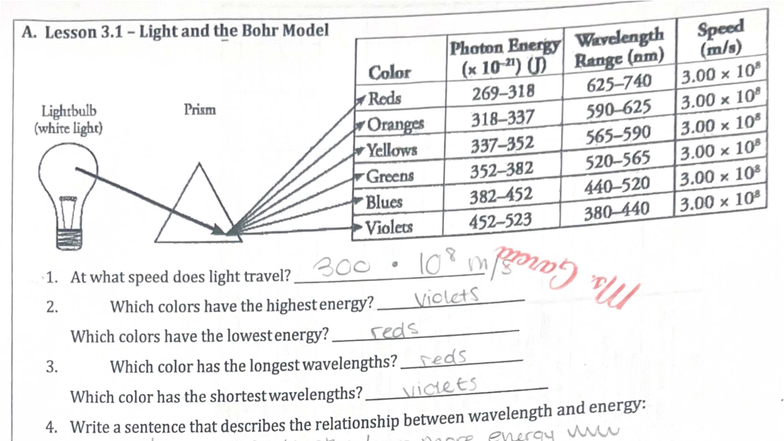 A. Lesson 3.1 – Light and the Bohr Model
Lightbulb
(white light)
Prism
Color Photon Energy (x 10⁻²¹) (J) Wavelength Range (nm) Speed (m/s)
Reds 269–318 625–740 3.00 × 10⁸
Oranges 318–337 590–625 3.00 × 10⁸
Yellows 337–352 565–590 3.00 × 10⁸
Greens 352–382 520–565 3.00 × 10⁸
Blues 382–452 440–520 3.00 × 10⁸
Violets 452–523 380–440 3.00 × 10⁸
1. At what speed does light travel? 300 • 10⁸ m/s
Ms. Garcia
2. Which colors have the highest energy? violets
Which colors have the lowest energy? reds
3. Which color has the longest wavelengths? reds
Which color has the shortest wavelengths? violets
4. Write a sentence that describes the relationship between wavelength and energy:
more energy